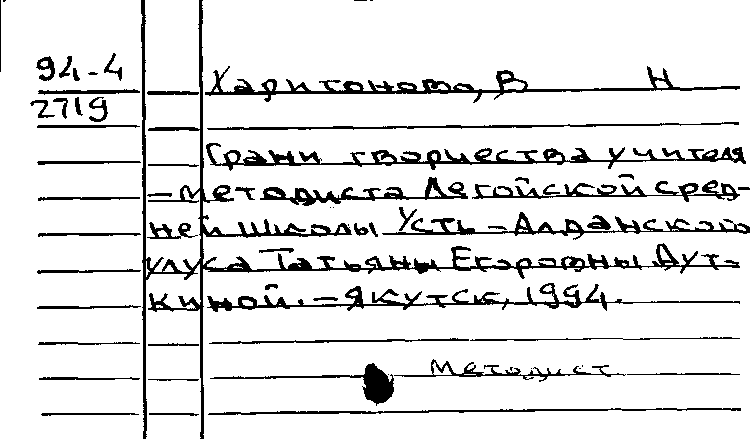 94-4
2719
Харитонова, В Н
Грани творчества учителя
-методиста Легойской сред-
ней школы Усть-Алданского
улуса Татьяны Егоровны Дут-
киной. - Якутск, 1994.
Методист